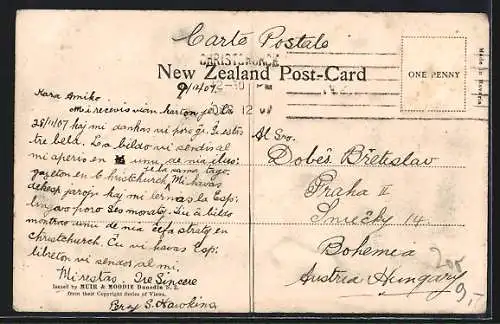 Carte Postale
CHRISTCHURCH
New Zealand Post-Card
ONE PENNY
12-30 PM
9/12/07
Kara Amiko
Mi recevis vian karton je la
25/11/07 kaj mi dankas vi por ĝi. Ĝi estas
tre bela. La bildo vi sendis al
mi aperis en unu de nia ilus:
gazeton en Christchurch je la sama tago. Mi havas
dekses jaroj kaj mi lernas la Esp:
lingvo poro ses monatoj. Tiu ĉi bildo
montras unu de nia ĉefa strato en
Christchurch. Ĉu vi havas Esp:
libreton vi sendos al mi.
Mi restas. Tre Sincere
Percy S. Hawkins
Issued by MUIR & MOODIE Dunedin N. Z.
from their Copyright Series of Views.
Al Sro.
Dobeš Břetislav
Praha II
Smečky 14
Bohemia
Austria Hungary